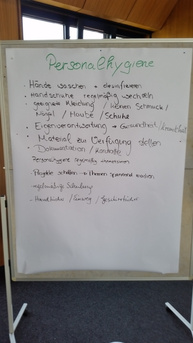 Personalhygiene
· Hände waschen + desinfizieren
· Handschuhe regelmäßig wechseln
· geeignete Kleidung / keinen Schmuck /
Nägel / Haube / Schuhe
· Eigenverantwortung → Gesundheit / Krankheit
· Material zur Verfügung stellen
· Dokumentation / Kontrolle
Personalhygiene regelmäßig
· Projekte stellen → Themen
· regelmäßige Schulung
· Handtücher /